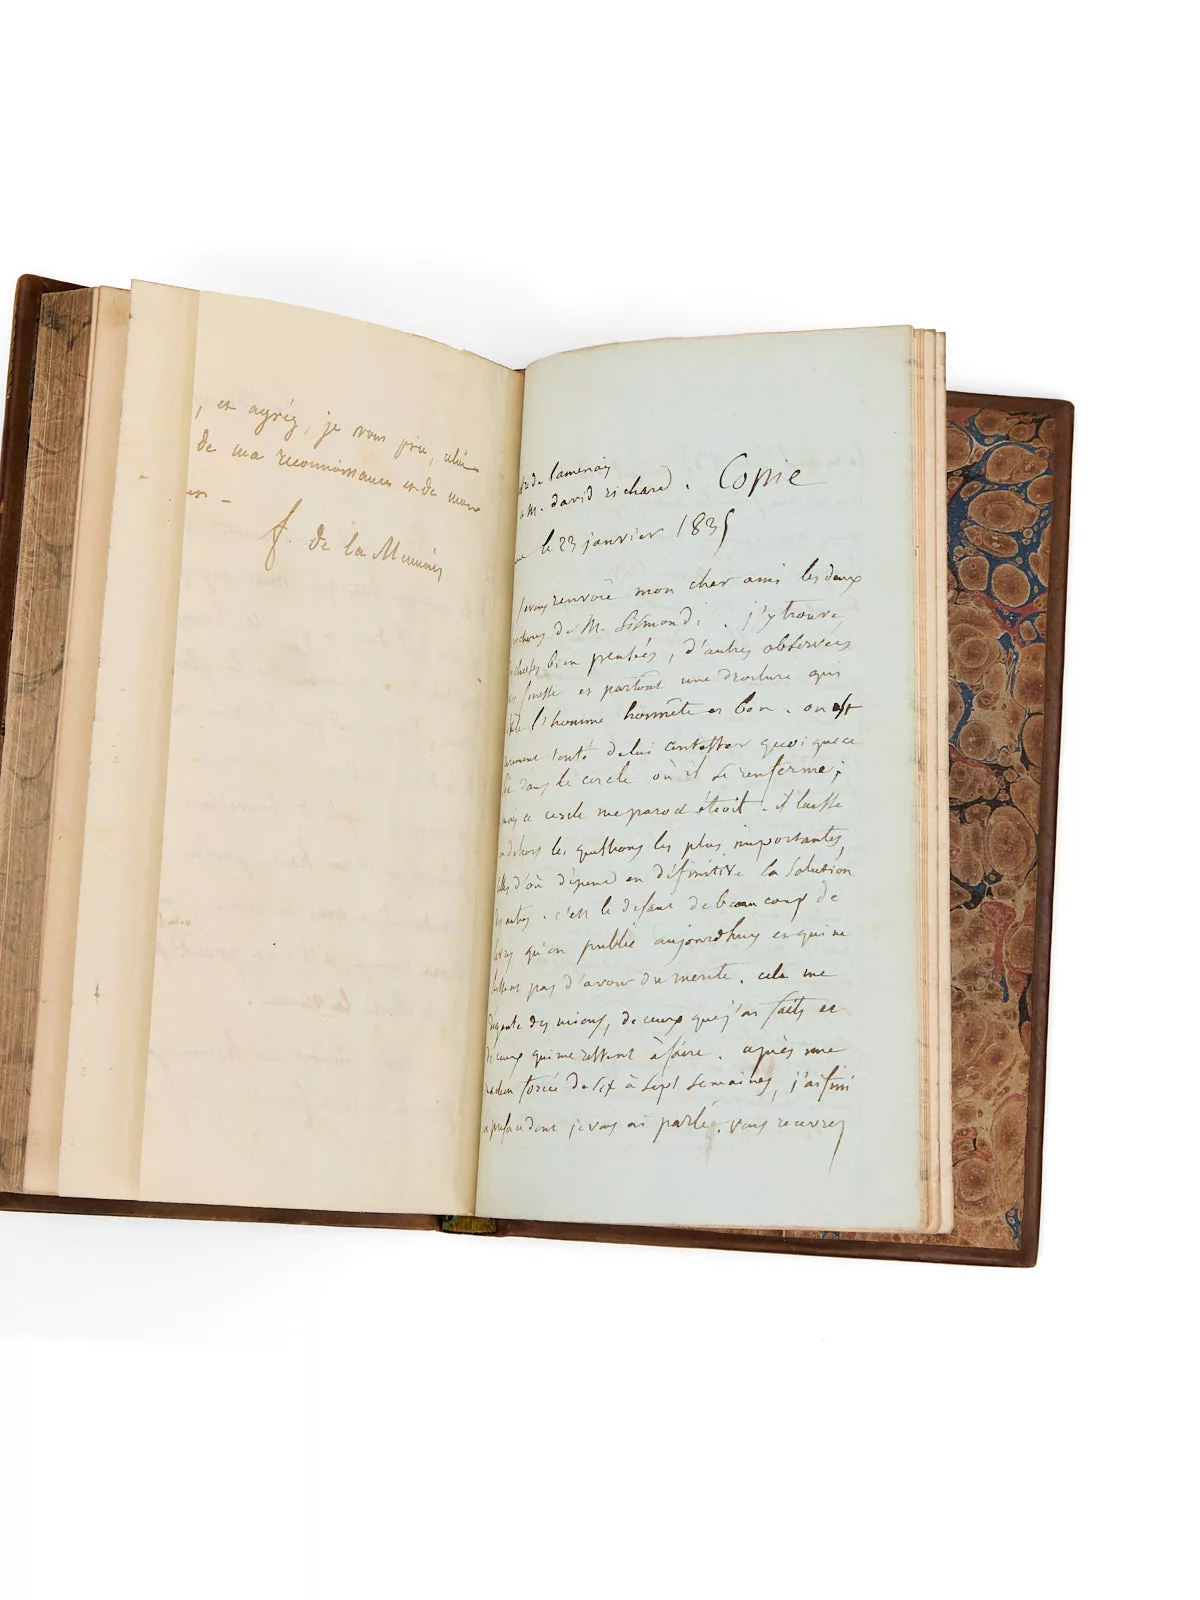 , et agréez, je vous prie,
de ma reconnoissance et de mon
f de la Mennais
de lamenais
a M. david richard. Copie
le 23 janvier 1835
Je vous renvoie mon cher ami les deux
de M. Sismondi. j'y trouve
choses bien pensées, d'autres observées
finesse et partout une droiture qui
l'homme honnête et bon. on est
tenté de lui contester quoi que ce
dans le cercle où il se renferme;
mais ce cercle me paroit étroit. il laisse
en dehors les questions les plus importantes,
celles d'où dépend en définitive la solution
des autres. c'est le defaut de beaucoup de
livres qu'on publie aujourdhuy et qui ne
laissent pas d'avoir du merite. cela me
dégoute des miens, de ceux que j'ai faits et
de ceux qui me restent à faire. après une
forcée de six à sept semaines, j'ai fini
la preface dont je vous ai parlé. vous recevrez